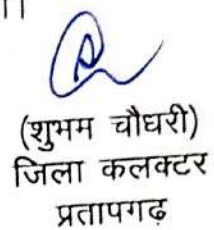 (शुभम चौधरी)
जिला कलक्टर
प्रतापगढ़